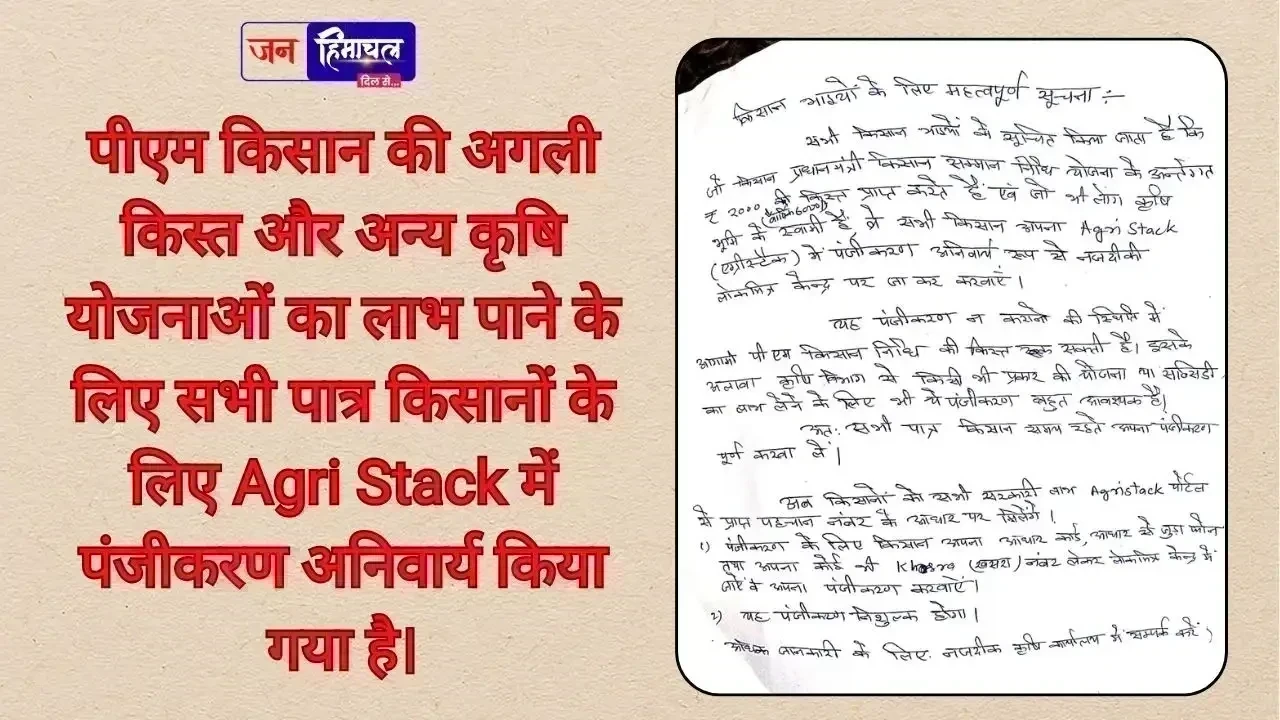 जन हिमाचल
दिल से...
पीएम किसान की अगली
किस्त और अन्य कृषि
योजनाओं का लाभ पाने के
लिए सभी पात्र किसानों के
लिए Agri Stack में
पंजीकरण अनिवार्य किया
गया है।
किसान भाइयों के लिए महत्वपूर्ण सूचना :-
सभी किसान भाईयों को सूचित किया जाता है कि
जो किसान प्रधानमंत्री किसान सम्मान निधि योजना के अन्तर्गत
₹ 2000 की किस्त प्राप्त करते हैं एवं जो भी लोग कृषि
(वार्षिक 6000)
भूमि के स्वामी हैं, वे सभी किसान अपना Agri Stack
(एग्रीस्टैक) में पंजीकरण अनिवार्य रूप से नजदीकी
लोकमित्र केन्द्र पर जा कर करवाएँ।
यह पंजीकरण न कराने की स्थिति में
आगामी पी एम किसान निधि की किस्त रुक सकती है। इसके
अलावा कृषि विभाग से किसी भी प्रकार की योजना या सब्सिडी
का लाभ लेने के लिए भी ये पंजीकरण बहुत आवश्यक है।
अतः सभी पात्र किसान समय रहते अपना पंजीकरण
पूर्ण करवा लें।
अब किसानों को सभी सरकारी लाभ Agristack पोर्टल
से प्राप्त पहचान नंबर के आधार पर मिलेंगे।
1) पंजीकरण के लिए किसान अपना आधार कार्ड, आधार से जुड़ा फोन
तथा अपना कोई भी Khasra (खसरा) नंबर लेकर लोकमित्र केन्द्र में
जाएं व अपना पंजीकरण करवाएं।
2) यह पंजीकरण निशुल्क होगा।
अधिक जानकारी के लिए नजदीक कृषि कार्यालय में सम्पर्क करें